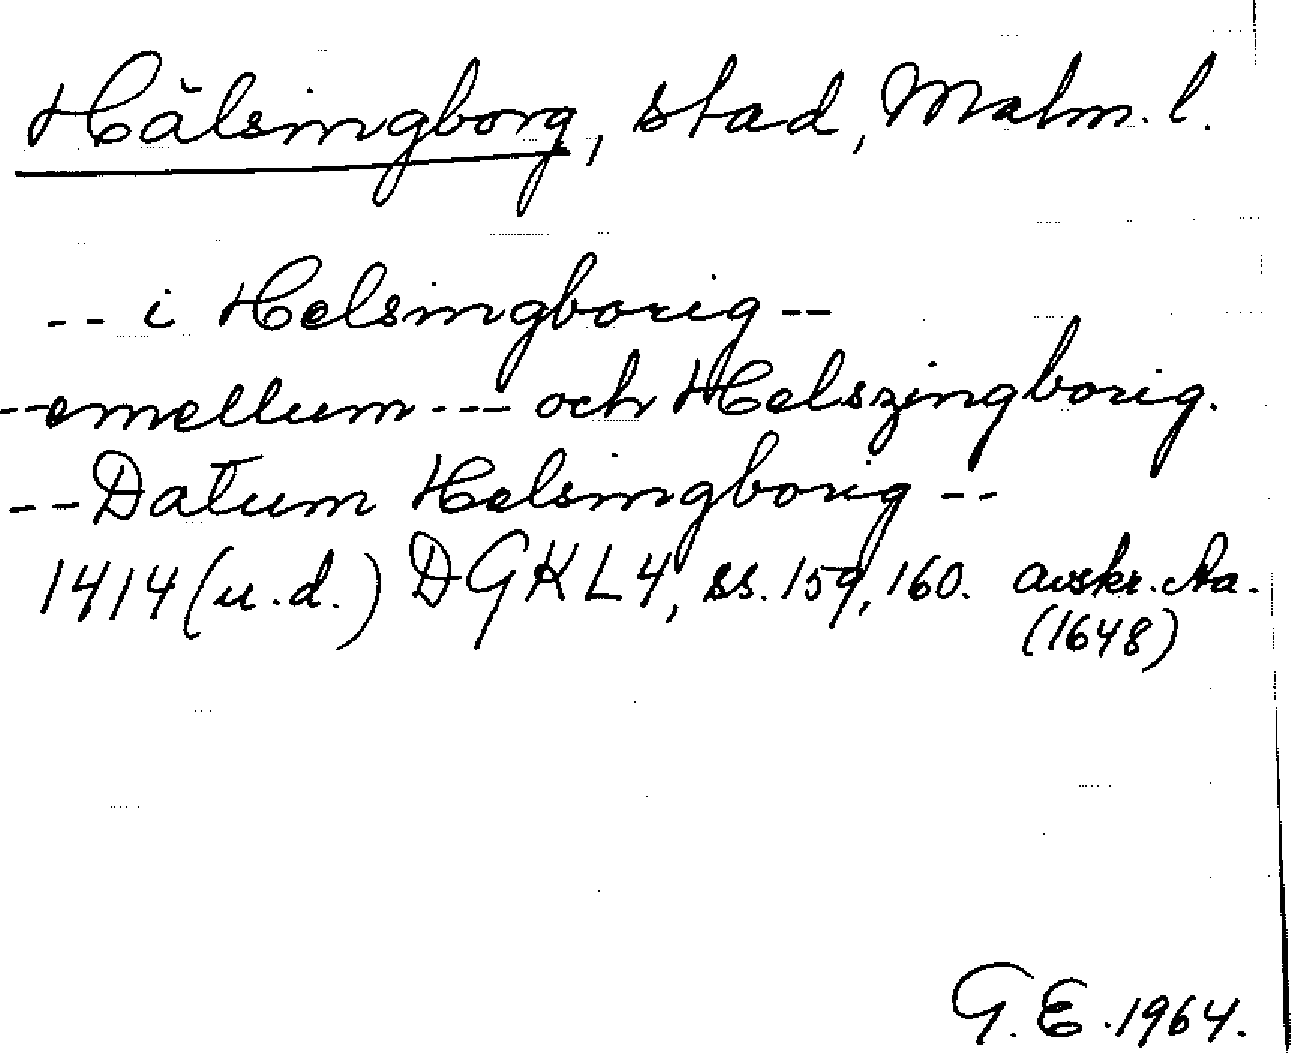 Hälsingborg, stad, Malm. l.
-- i Helsingborig --
-- emellum --- och Helszingborig.
-- Datum Helsingborig --
1414 (u.d.) DGKL4, ss. 159, 160. avskr. Aa.
(1648)
G. E. 1964.